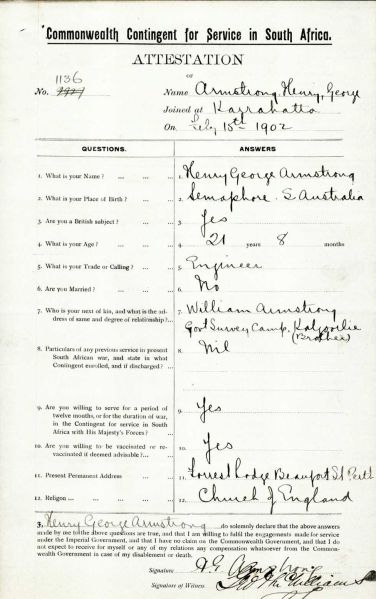 Commonwealth Contingent for Service in South Africa.
ATTESTATION
OF
1136
No.
Name Armstrong, Henry, George
Joined at Karrakatta
On Feby 15th 1902
QUESTIONS. ANSWERS
1. What is your Name? 1. Henry George Armstrong
2. What is your Place of Birth? 2. Semaphore. S Australia
3. Are you a British subject? 3. Yes
4. What is your Age? 4. 21 years 8 months
5. What is your Trade or Calling? 5. Engineer
6. Are you Married? 6. No
7. Who is your next of kin, and what is the ad- 7. William Armstrong
dress of same and degree of relationship? Govt Survey Camp, Kalgoorlie
(Brother)
8. Particulars of any previous service in present 8. Nil
South African war, and state in what
Contingent enrolled, and if discharged?
9. Are you willing to serve for a period of 9. Yes
twelve months, or for the duration of war,
in the Contingent for service in South
Africa with His Majesty's Forces?
10. Are you willing to be vaccinated or re- 10. Yes
vaccinated if deemed advisable?
11. Present Permanent Address 11. Forrest Lodge Beaufort St Perth
12. Religon 12. Church of England
3. Henry George Armstrong do solemnly declare that the above answers
made by me to the above questions are true, and that I am willing to fulfil the engagements made for service
under the Imperial Government, and that I have no claim on the Commonwealth Government, and that I do
not expect to receive for myself or any of my relations any compensation whatsoever from the Common-
wealth Government in case of my disablement or death.
Signature H G Armstrong
Signature of Witness McWilliams